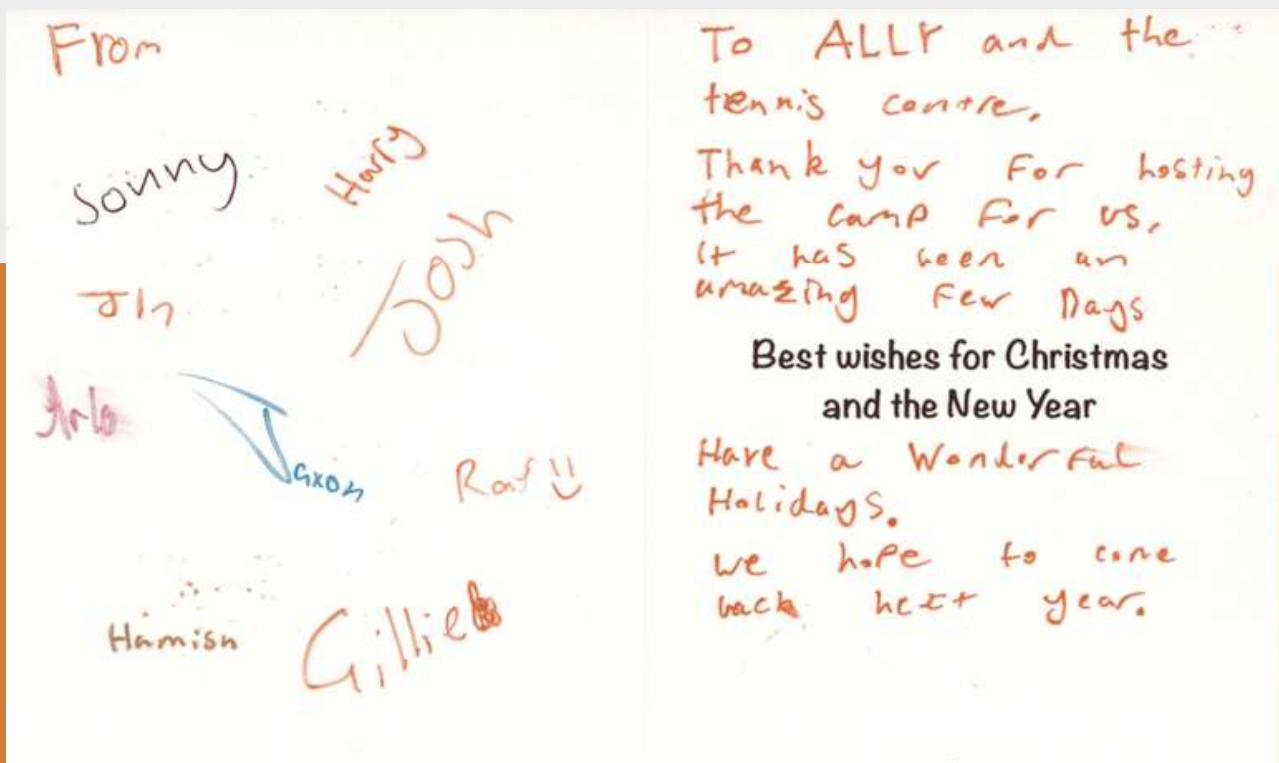 From
Sonny
Harry
Josh
Jin
Arlo
Jaxon
Ray
Hamish
Gillie
To ALLY and the
tennis centre,
Thank you For hosting
the camp For us,
It has been an
amazing Few Days
Best wishes for Christmas
and the New Year
Have a Wonderful
Holidays.
we hope to come
back next year.